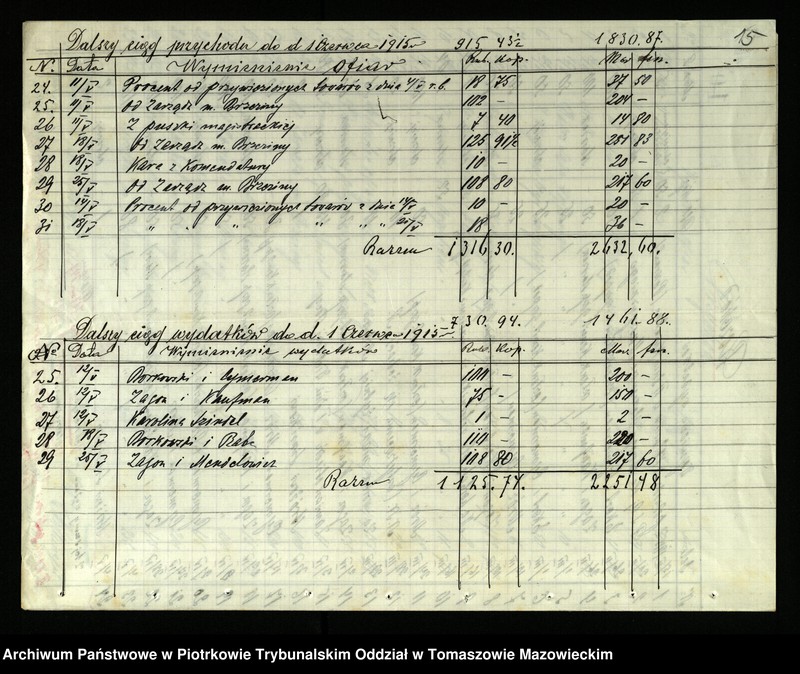 15
Dalszy ciąg przychodu do d 1 Czerwca 1915 r 915 43½ 1830.87.
N. Data Wymienienie ofiar Rub. Kop. Mar. fen.
24. 11/V Procent od przywiezionych towarów z dnia 4/V r.b. 18 75 37 50
25. 11/V od Zarząd m. Brzeziny 102 – 204 –
26 11/V Z puszki magistrackiej 7 40 14 80
27 18/V Od Zarząd m. Brzeziny 125 91½ 251 83
28 18/V Kara z Komendatury 10 – 20 –
29 25/V Od Zarząd m. Brzeziny 108 80 217 60
30 Procent od przywiezionych towarów z dnia 10 – 20 –
31 18/V " " " " " " 18 36 –
Razem 1316 30. 2632.60.
Dalszy ciąg wydatków do d. 1 Czerwca 1915 730.94. 1461.88.
№ Data Wymienienie wydatków Rub. Kop. Mar. fen.
25. 12/V Borkowski i Cymerman 100 – 200 –
26 12/V Zagon i Kaufman 75 – 150 –
27 12/V Karolina Szindel 1 – 2 –
28 19/V Borkowski i Bab 110 – 220 –
29 25/V Zagon i Mendelowicz 108 80 217 60
Razem 1125.74. 2251 48
Archiwum Państwowe w Piotrkowie Trybunalskim Oddział w Tomaszowie Mazowieckim